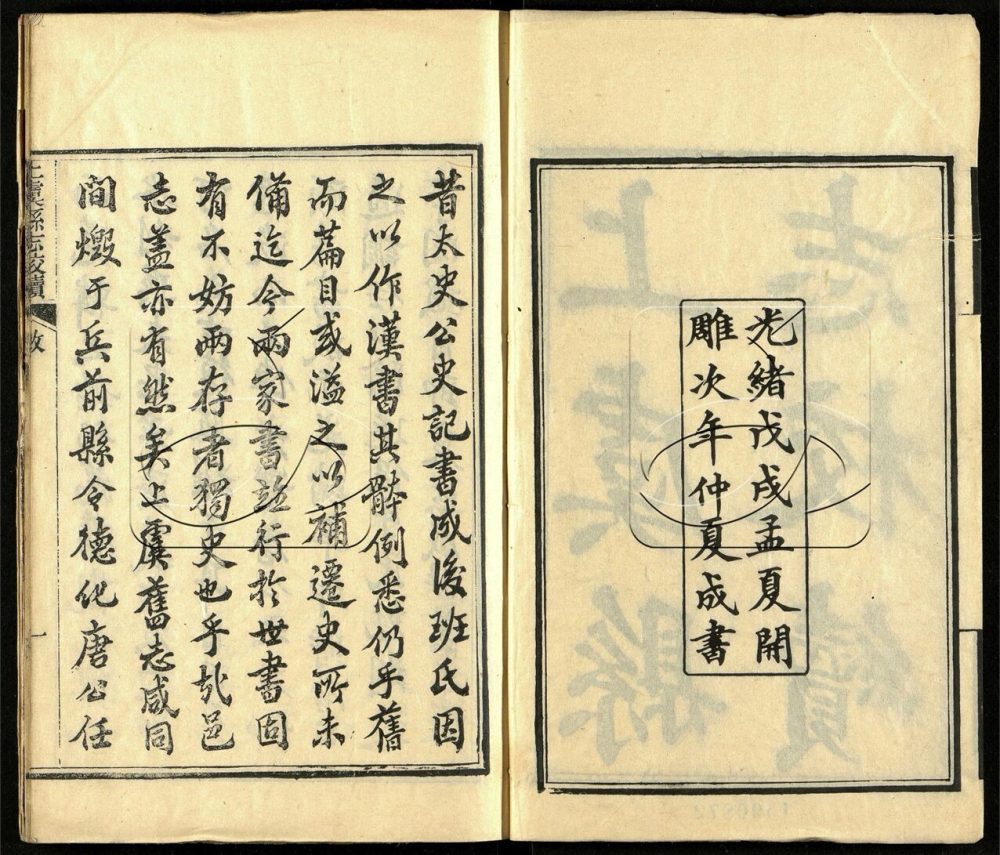 光緒戊戌孟夏開
雕次年仲夏成書
昔太史公史記書成後班氏因
之以作漢書其骵例悉仍乎舊
而篇目或溢之以補遷史所未
備迄今兩家書竝行於世書固
有不妨兩存者獨史也乎哉邑
志蓋亦有然矣上虞舊志咸同
間燬于兵前縣令德化唐公任
上虞縣志校續
一